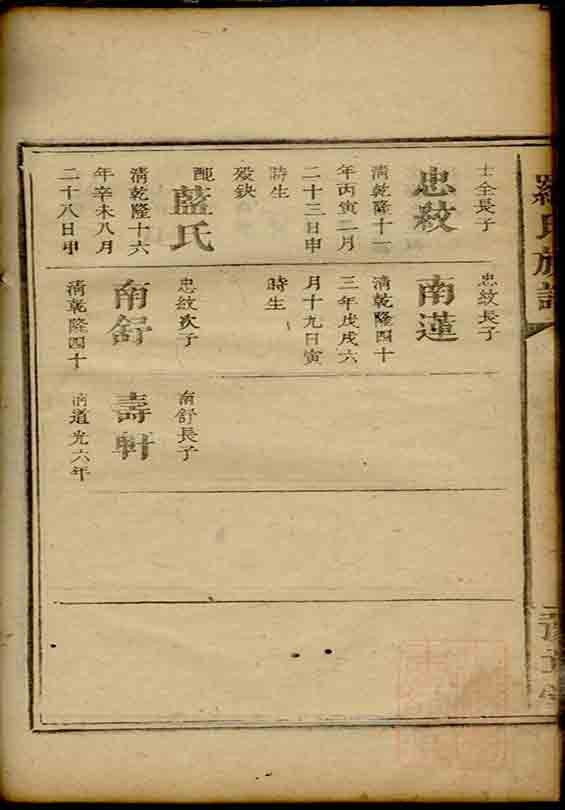 羅氏族譜
士全長子
忠紋
清乾隆十一
年丙寅二月
二十三日申
時生
歿缺
配藍氏
清乾隆十六
年辛未八月
二十八日申
忠紋長子
南蓮
清乾隆四十
三年戊戌六
月十九日寅
時生
忠紋次子
南舒
清乾隆四十
南舒長子
壽軒
清道光六年
豫章堂